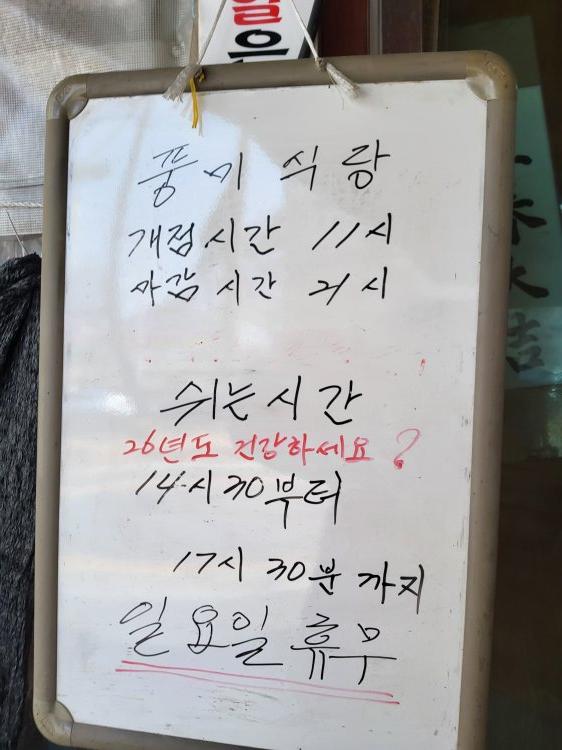 일요
풍미 식당
개점시간 11시
마감시간 21시
쉬는시간
26년도 건강하세요?
14시30부터
17시 30분까지
일요일 휴무